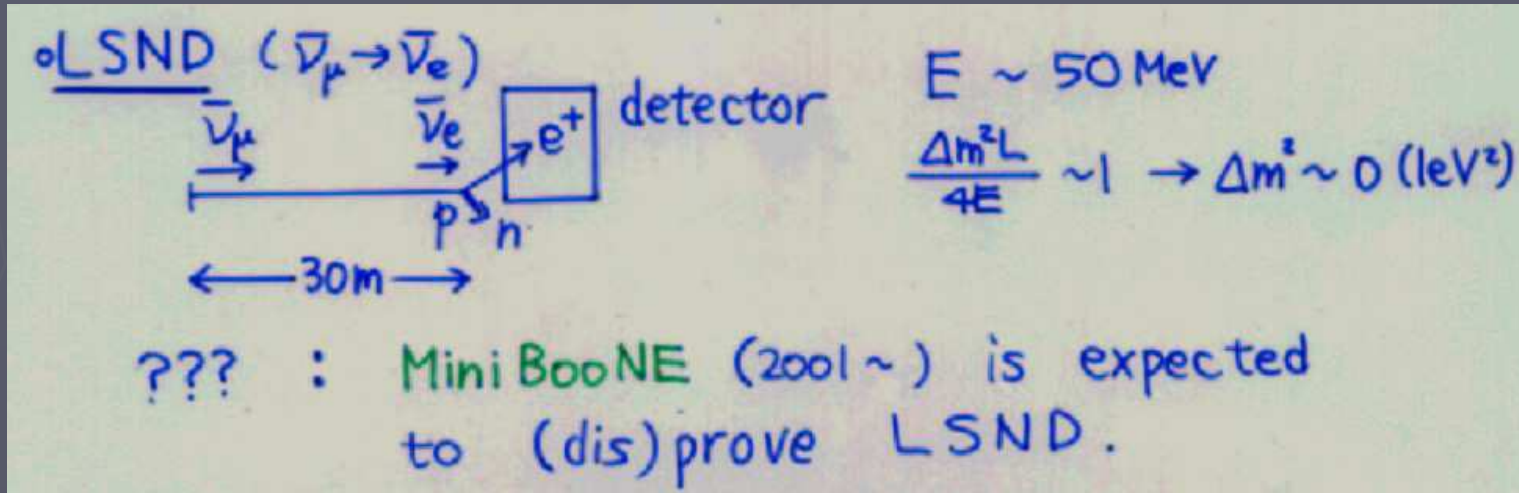 ∘LSND (ν̄μ→ν̄e)
ν̄μ
ν̄e
e⁺
detector
p
n
30m
E ~ 50 MeV
Δm²L/4E ~1 → Δm² ~ O (1eV²)
??? : Mini BooNE (2001~) is expected
to (dis)prove LSND.